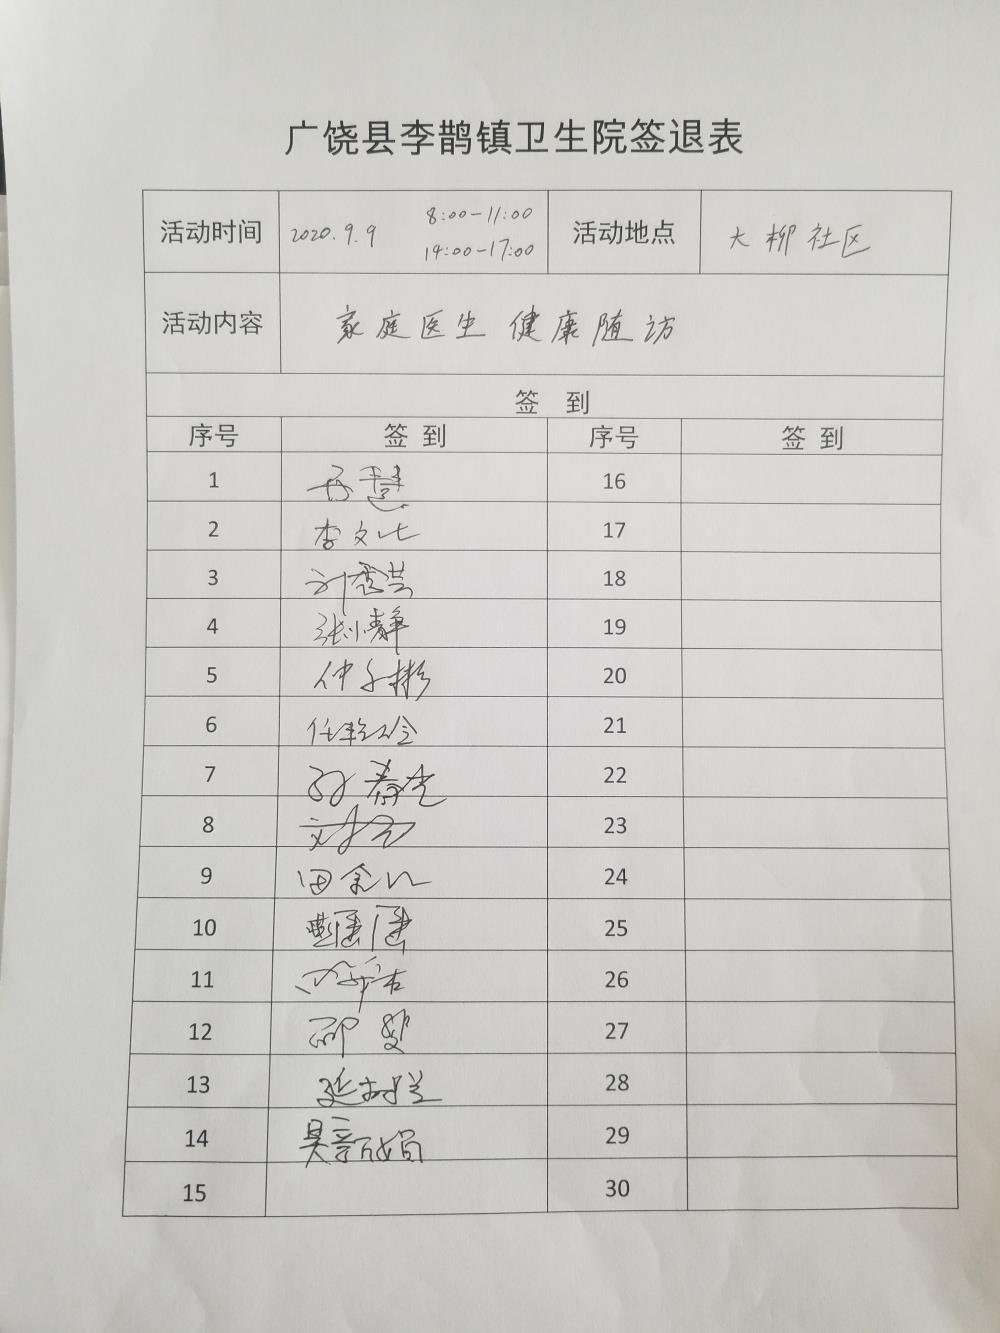 广饶县李鹊镇卫生院签退表
活动时间 2020.9.9 8:00-11:00 14:00-17:00 活动地点 大柳社区
活动内容 家庭医生 健康随访
签 到
序号 签到 序号 签到
1 16
2 李文 17
3 刘秀兰 18
4 张小静 19
5 仲子彬 20
6 任 21
7 孙春光 22
8 刘 23
9 田 24
10 25
11 26
12 邵 27
13 延 28
14 吴 29
15 30